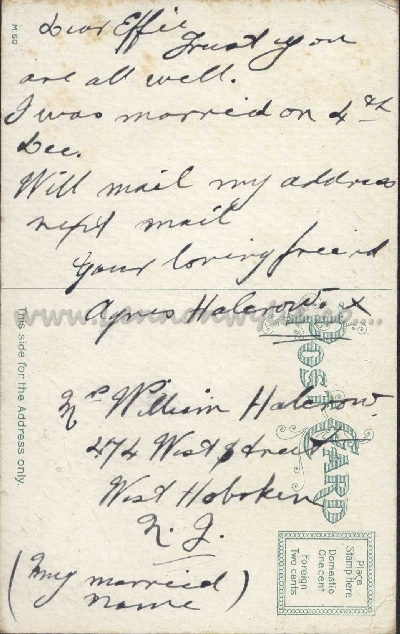 Dear Effie
Trust you
are all well.
I was married on 4th
Dec.
Will mail my address
next mail
Your loving friend
Agnes Halcrow. x
Mrs William Halcrow.
474 West Street
West Hoboken
N. J.
(My married
name)
M 50
This side for the Address only.
POST CARD
Place
Stamp here
Domestic
One cent
Foreign
Two cents